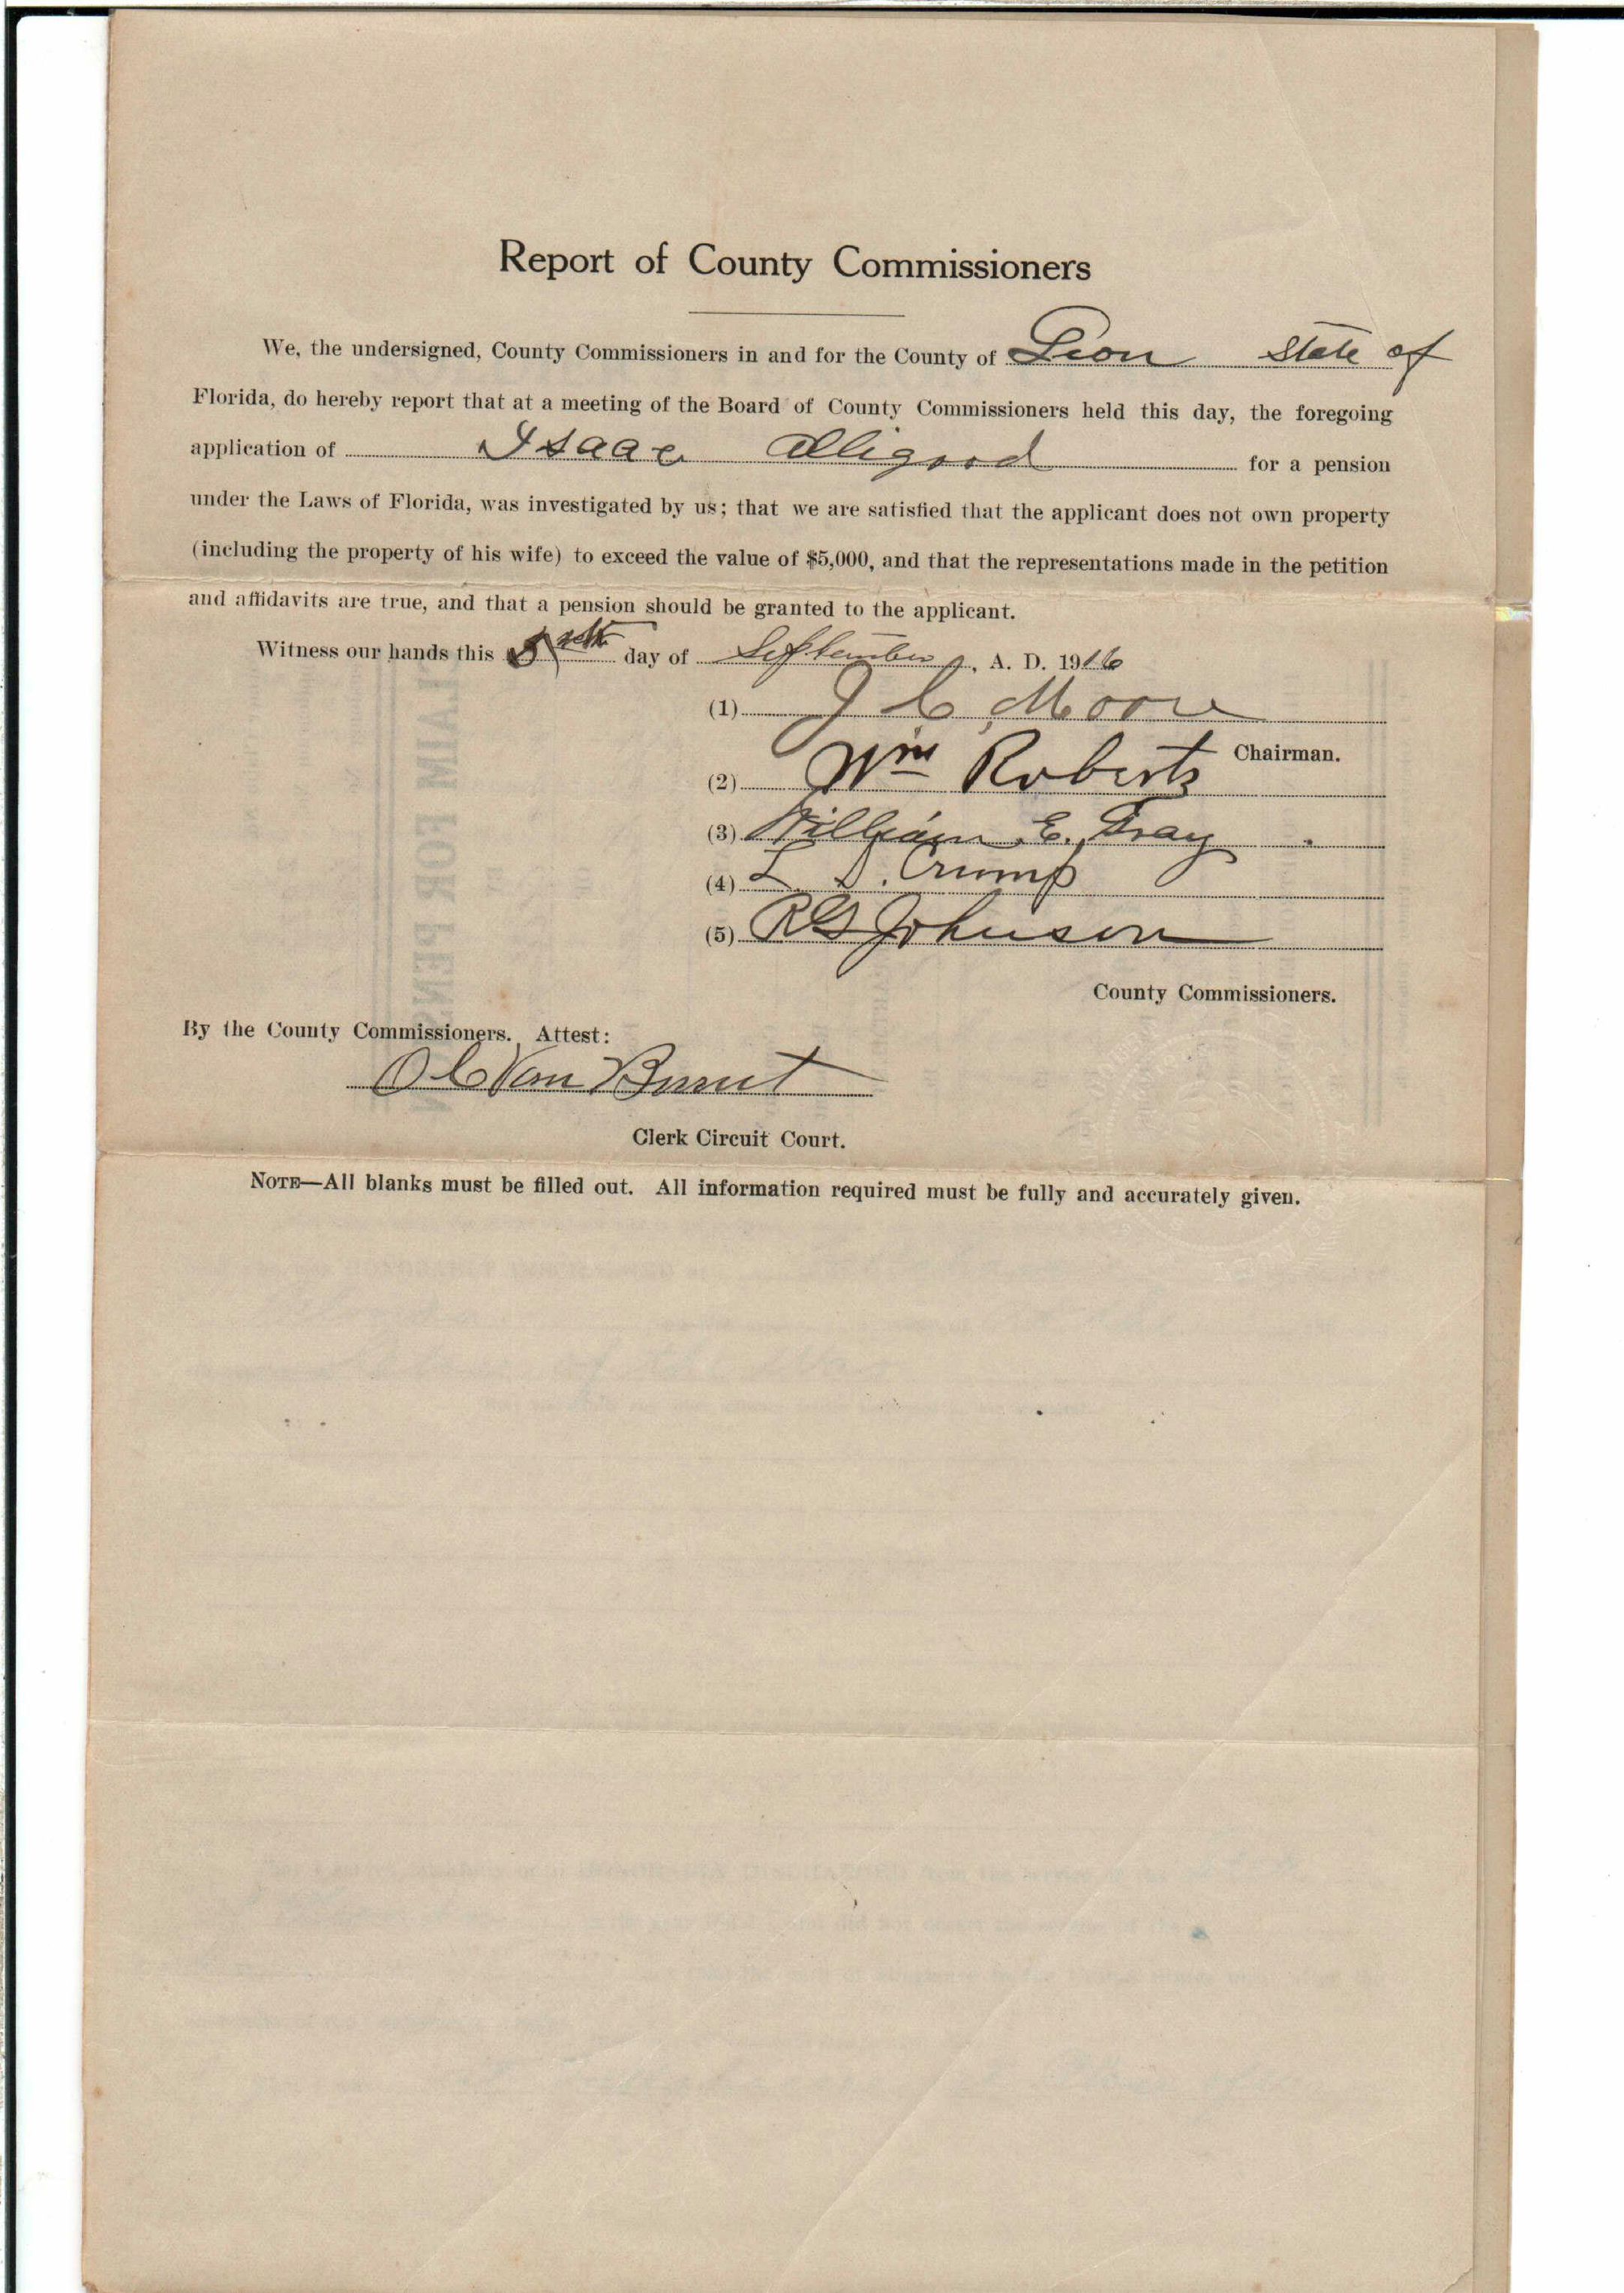 Report of County Commissioners
We, the undersigned, County Commissioners in and for the County of Leon State of
Florida, do hereby report that at a meeting of the Board of County Commissioners held this day, the foregoing
application of Isaac Alligood for a pension
under the Laws of Florida, was investigated by us; that we are satisfied that the applicant does not own property
(including the property of his wife) to exceed the value of $5,000, and that the representations made in the petition
and affidavits are true, and that a pension should be granted to the applicant.
Witness our hands this day of September, A. D. 1916
(1) J C Moore
Chairman.
(2) Wm Roberts
(3) William E.
(4) L. D. Crump
(5) RG Johnson
County Commissioners.
By the County Commissioners. Attest:
Clerk Circuit Court.
NOTE—All blanks must be filled out. All information required must be fully and accurately given.